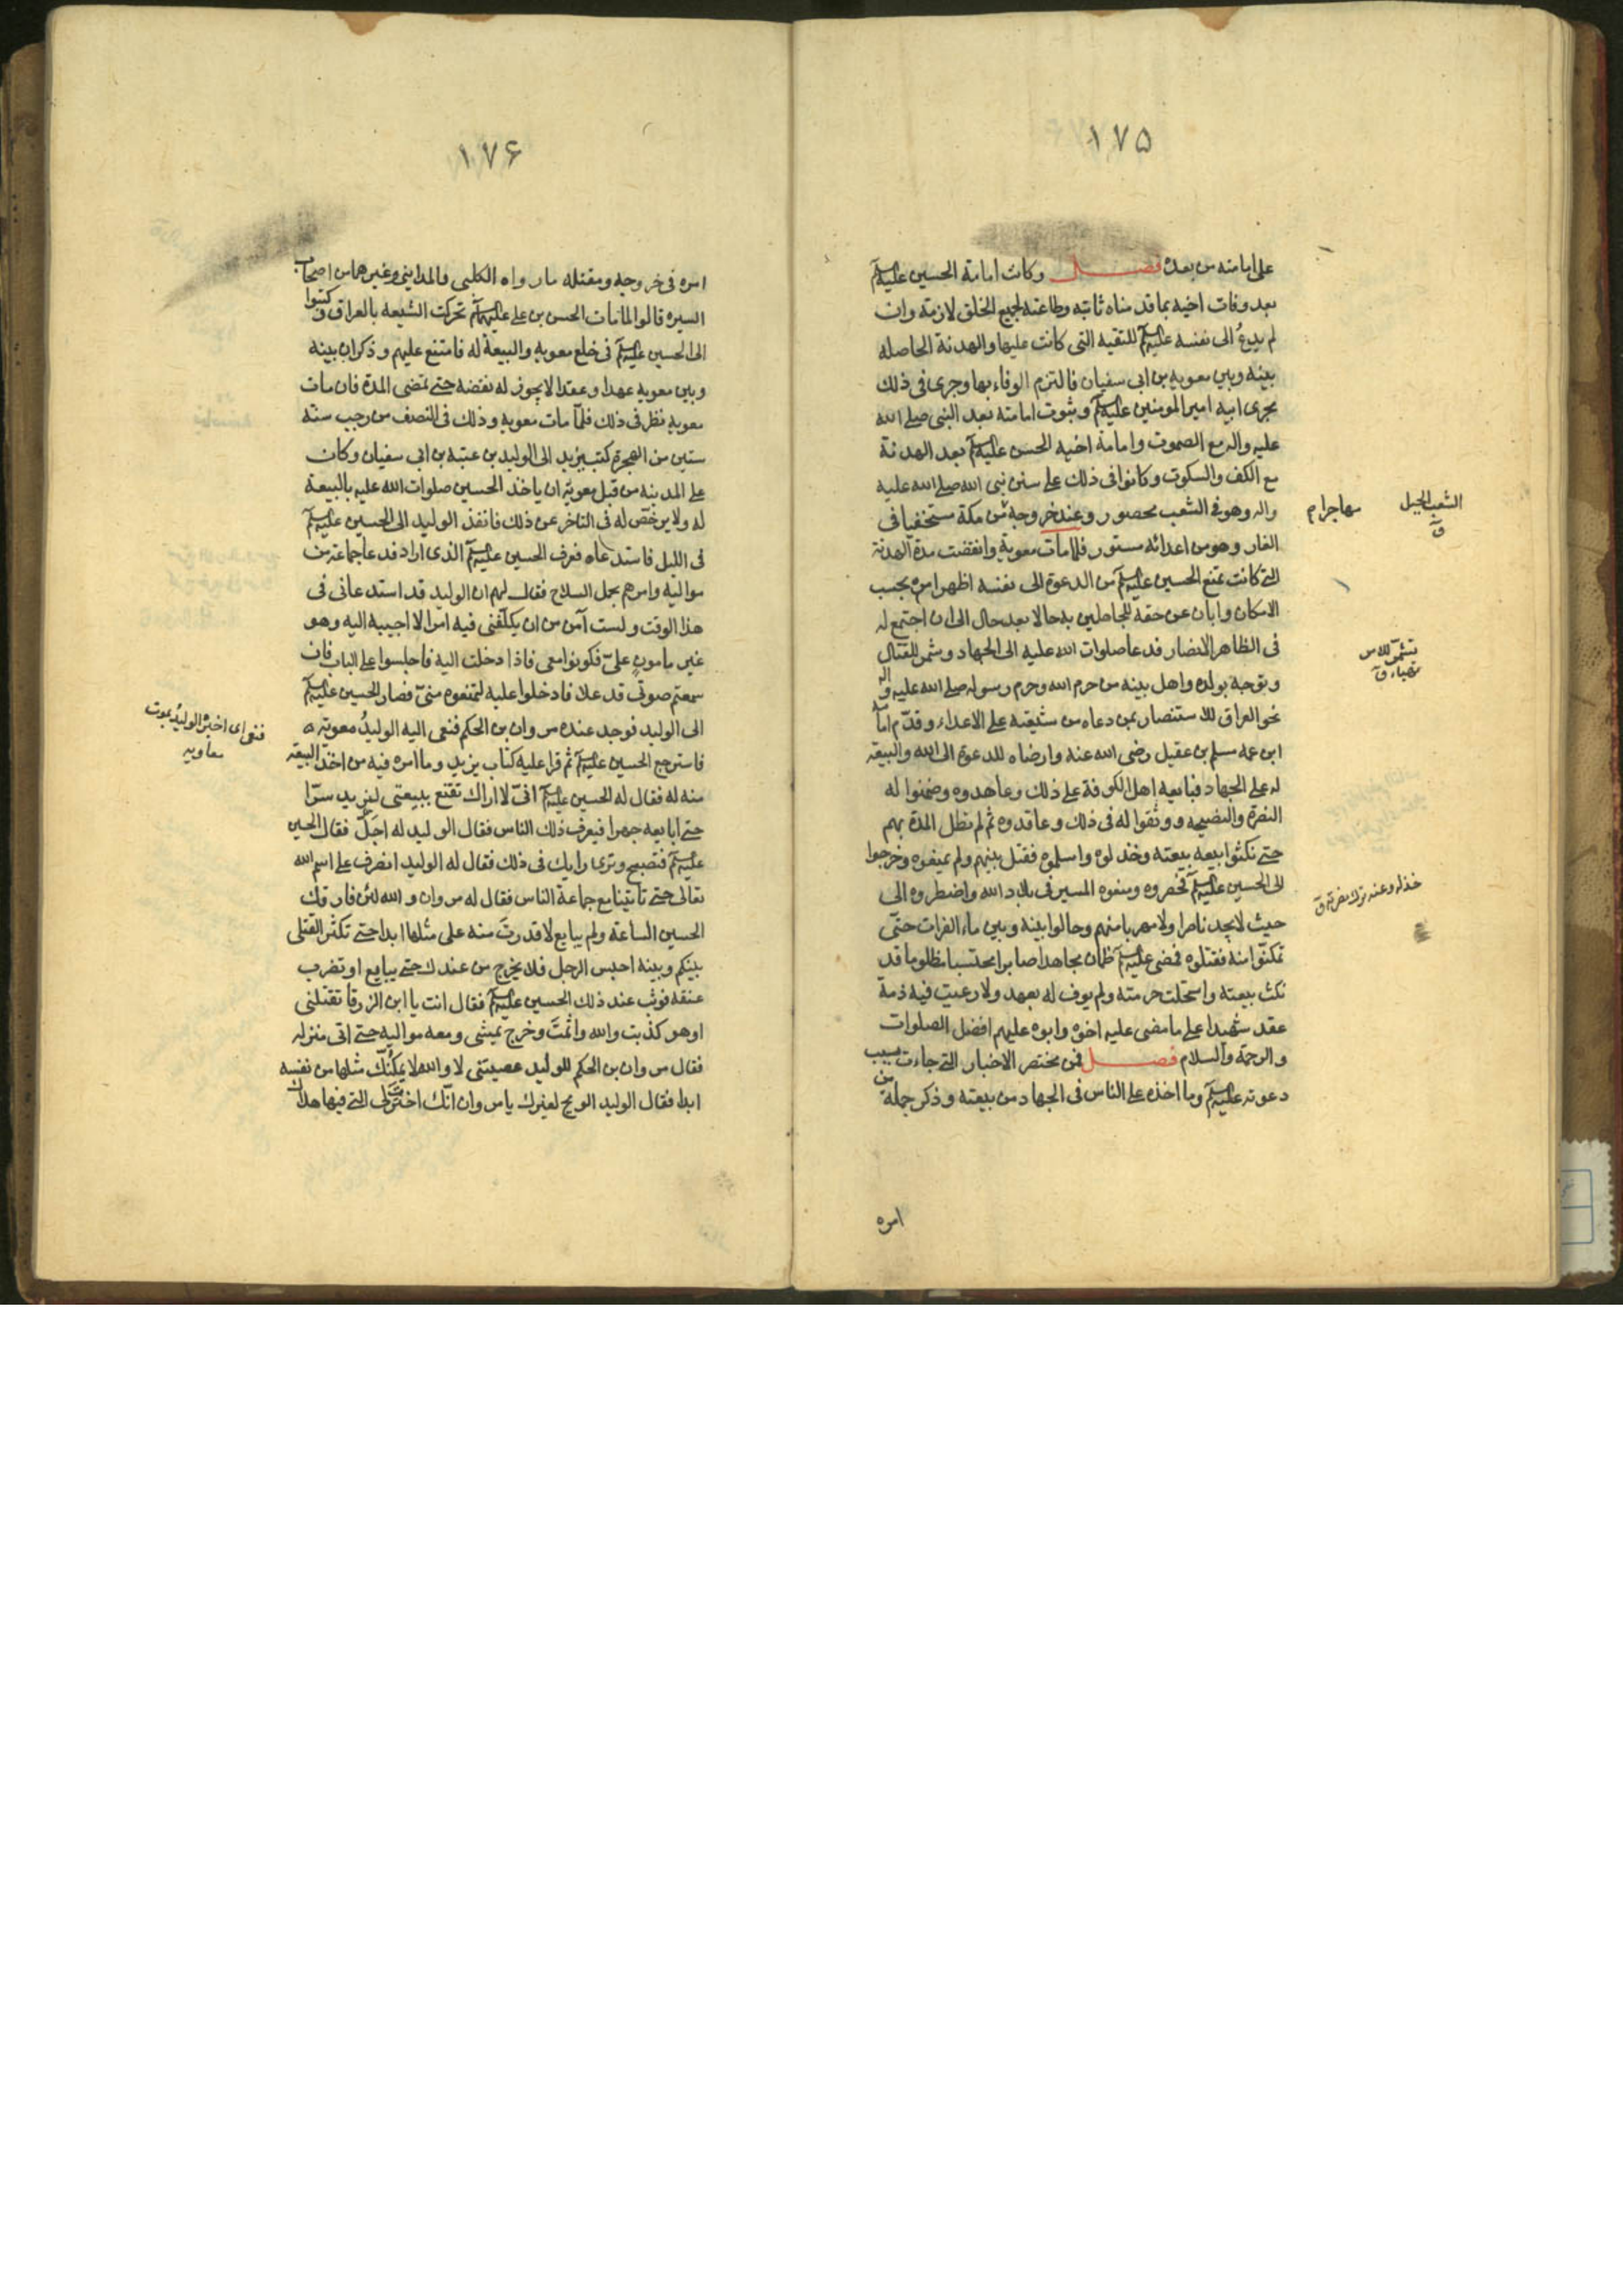 ١٧۵
على امامته من بعده فصل وكانت امامة الحسين عليه السلم
بعد وفات اخيه بما قد مناه ثابته وطاعته لجميع الخلق لازمة وان
لم يدعُ الى نفسه عليه السلم للتقيه التى كانت عليها والهدنة الحاصله
بينه وبين معوية بن ابى سفيان فالتزم الوفاء بها وجرى فى ذلك
مجرى ابيه امير المومنين عليه السلم وثبوت امامته بعد النبى صلى الله
عليه واله مع الصموت وامامة اخيه الحسن عليه السلم بعد الهدنة
مع الكف والسكوت وكانوا فى ذلك على سنن نبى الله صلى الله عليه
واله وهو فى الشعب محصور وعند خروجه من مكة مستخفيا فى
الغار وهو من اعدائه مستور فلما مات معوية وانقضت مدة الهدنة
التى كانت تمنع الحسين عليه السلم من الدعوة الى نفسه اظهر امره بحسب
الامكان وابان عن حقه للجاهلين به حالا بعد حال الى ان اجتمع له
فى الظاهر الانصار فدعا صلوات الله عليه الى الجهاد وشمر للقتال
وتوجه بولده واهل بيته من حرم الله وحرم رسوله صلى الله عليه واله
نحو العراق للاستنصار بمن دعاه من شيعته على الاعداء وقدّم امامه
ابن عمه مسلم بن عقيل رضى الله عنه وارضاه للدعوة الى الله والبيعة
له على الجهاد فبايعه اهل الكوفة على ذلك وعاهدوه وضمنوا له
النصرة والنصيحه ووثقوا له فى ذلك وعاقدوه ثم لم تطل المدة بهم
حتى نكثوا بيعته وخذلوه واسلموه فقتل بينهم ولم يمنعوه وخرجوا
الى الحسين عليه السلم فحصروه ومنعوه المسير فى بلاد الله واضطروه الى
حيث لا يجد ناصرا ولا مهربا منهم وحالوا بينه وبين ماء الفرات حتّى
تمكنّوا منه فقتلوه فمضى عليه السلم ظمان مجاهدا صابرا محتسبا مظلوما قد
نكثت بيعته واستحلت حرمته ولم يوف له بعهد ولا رعيت فيه ذمة
عقد شهيدا على ما مضى عليه اخوه وابوه عليهم افضل الصلوات
والرحمة والسلام فصل فمن مختصر الاخبار التى جاءت بسبب
دعوته عليه السلم وما اخذه على الناس فى الجهاد من بيعته وذكر جملة من
امره
الشعب الجبل
ق
مهاجرا م
تشمّر للامر
تهياء ق
خذله وعنه ترك نصرته ق
١٧۶
امره فى خروجه ومقتله ما رواه الكلبى والمداينى وغيرهما من اصحاب
السيره قالوا لما مات الحسن بن على عليهما السلم تحركت الشيعه بالعراق وكتبوا
الى الحسين عليه السلم فى خلع معوية والبيعة له فامتنع عليهم وذكر ان بينه
وبين معوية عهدا وعقدا لا يجوز له نقضه حتى تمضى المدة فان مات
معوية نظر فى ذلك فلمّا مات معوية وذلك فى النصف من رجب سنة
ستين من الهجرة كتب يزيد الى الوليد بن عتبة بن ابى سفيان وكان
على المدينه من قبل معوية ان ياخذ الحسين صلوات الله عليه بالبيعة
له ولا يرخص له فى التاخر عن ذلك فانفذ الوليد الى الحسين عليه السلم
فى الليل فاستدعاه فعرف الحسين عليه السلم الذى اراد فدعا جماعة من
مواليه وامرهم بحمل السلاح فقال لهم ان الوليد قد استدعانى فى
هذا الوقت ولست آمن من ان يكلّفنى فيه امرا لا اجيبه اليه وهو
غير مامون علىّ فكونوا معى فاذا دخلت اليه فاجلسوا على الباب فان
سمعتم صوتى قد علا فادخلوا عليه لتمنعوه منّى فصار الحسين عليه السلم
الى الوليد فوجد عنده مروان بن الحكم فنعى اليه الوليدُ معوية
فاسترجع الحسين عليه السلم ثم قرا عليه كتاب يزيد وما امره فيه من اخذ البيعة
منه له فقال له الحسين عليه السلم انّى لا اراك تقنع ببيعتى ليزيد سرّا
حتى ابايعه جهرا فيعرف ذلك الناس فقال الوليد له اجَل فقال الحسين
عليه السلم فتصبح وترى رايك فى ذلك فقال له الوليد انصرف على اسم الله
تعالى حتى تاتينا مع جماعة الناس فقال له مروان والله لئن فارقك
الحسين الساعة ولم يبايع لا قدرتَ منه على مثلها ابدا حتى تكثر القتلى
بينكم وبينه احبس الرجل فلا يخرج من عندك حتى يبايع او تضرب
عنقه فوثب عند ذلك الحسين عليه السلم فقال انت يا ابن الزرقا تقتلنى
او هو كذبت والله واثمتَ وخرج يمشى ومعه مواليه حتى اتى منزله
فقال مروان بن الحكم للوليد عصيتنى لا والله لا يمكّنك مثلها من نفسه
ابدا فقال الوليد الويح لغيرك يا مروان انّك اخترت لى التى فيها هلاك
فنعى اى اخبره الوليدُ بموت
معاويه